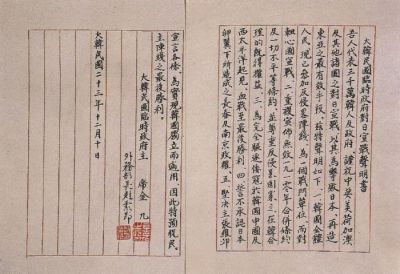 大韓民國臨時政府對日宣戰聲明書
吾人代表三千萬韓人及政府 謹祝中英美荷加濠
及其他諸國之對日宣戰 以其爲擊敗日本 再造
東亞之最有效手段 茲特聲明如下 一、韓國全體
人民 現已參加反侵略陣線 爲一個戰鬥單位 而對
軸心國宣戰 二、重複宣佈無效一九一〇年合併條約
及一切不平等條約 並尊重反侵略國家之在韓合
理的既得權益 三、爲完全驅逐倭寇於韓國中國及
西太平洋起見 血戰至最後勝利 四、誓不承認日本
卵翼下所造成之長春及南京政權 五、堅決主張羅邱
宣言各條 爲實現韓國獨立而適用 因此特預祝民
主陣線之最後勝利
大韓民國臨時政府主席金九
外務部長趙素昂 印
大韓民國二十三年十二月十日